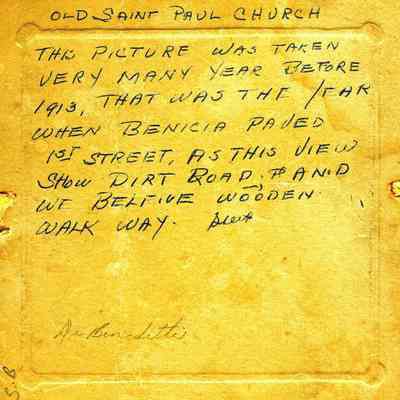 OLD SAINT PAUL CHURCH
THE PICTURE WAS TAKEN
VERY MANY YEAR BEFORE
1913, THAT WAS THE YEAR
WHEN BENICIA PAVED
1ST STREET, AS THIS VIEW
SHOW DIRT ROAD. AND
WE BELEIVE WOODEN
WALK WAY.
S.B